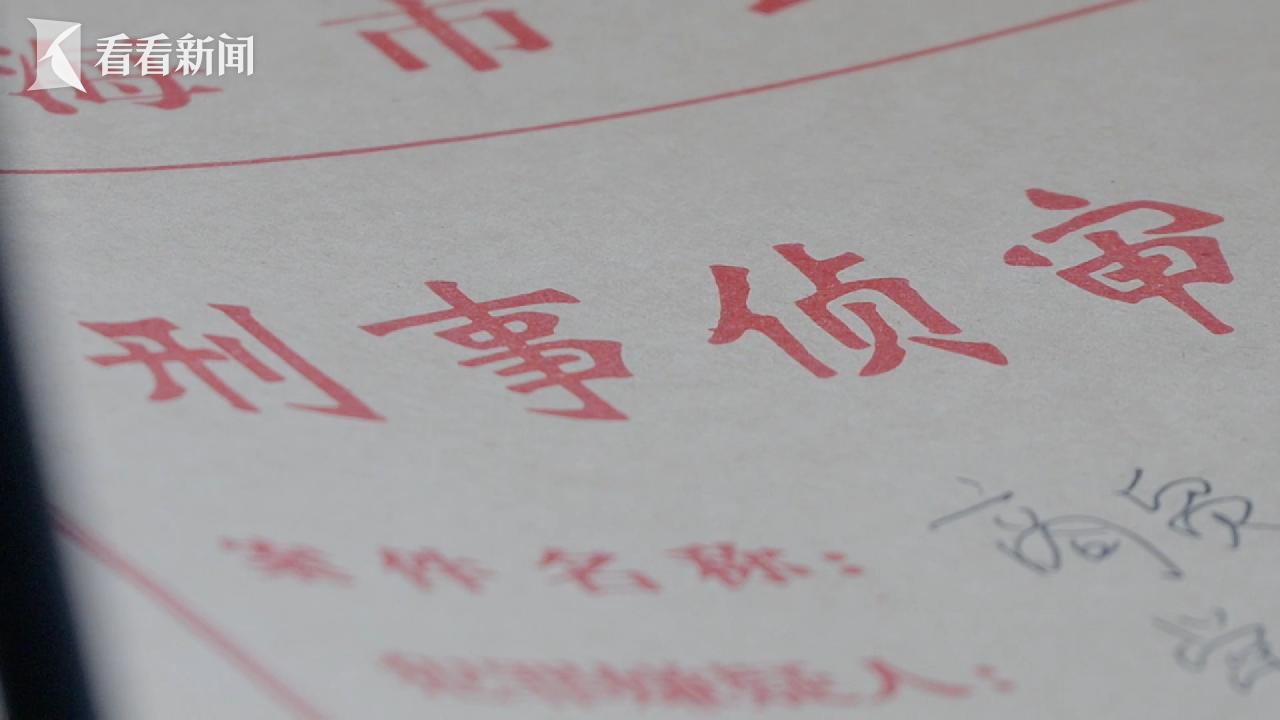 看看新闻
海市
刑事侦审
案件名称：
犯罪嫌疑人：